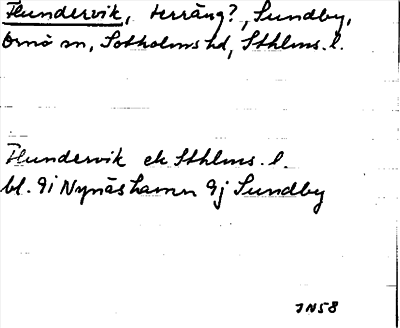 Flundervik, terräng?, Sundby,
Ornö sn, Sotholms hd, Sthlms. l.
Flundervik ek Sthlms. l.
bl. 9i Nynäshamn 9j Sundby
JN58